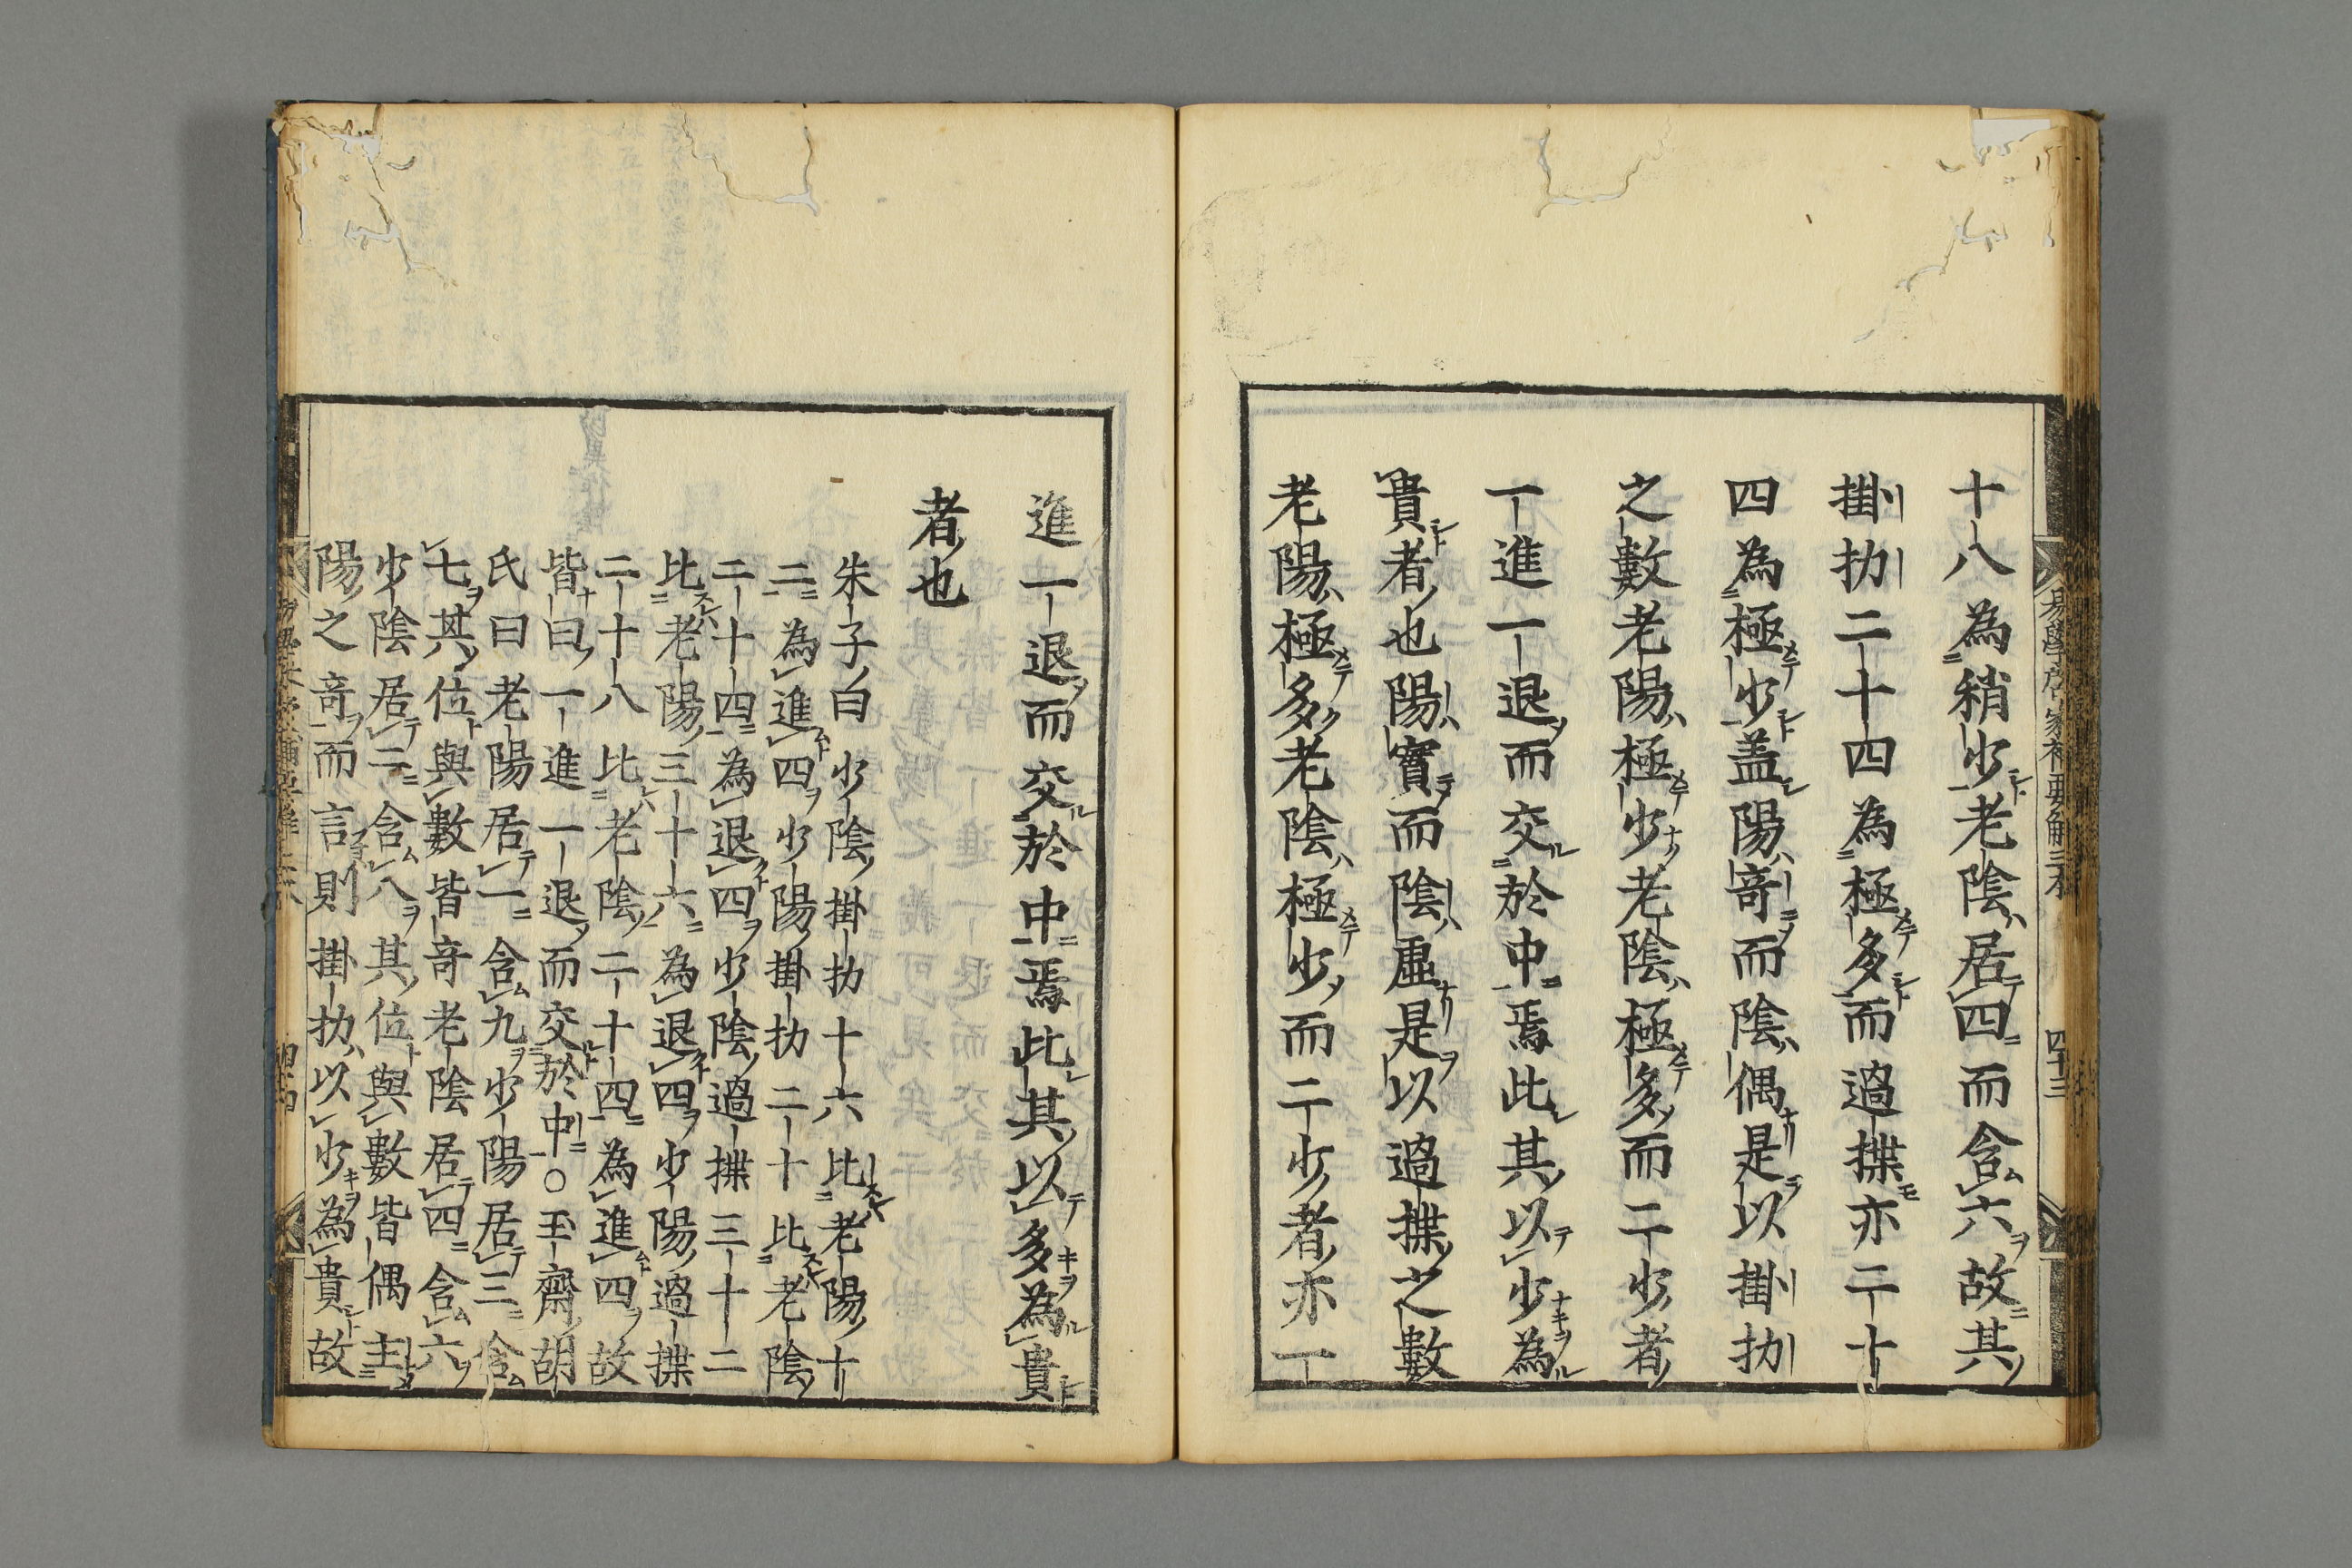 十八為稍少老陰居四而含六故其
掛扐二十四為極多而過揲亦二十
四為極少盖陽竒而陰偶是以掛扐
之數老陽極少老陰極多而二少者
一進一退而交於中焉此其以少為
貴者也陽實而陰虛是以過揲之數
老陽極多老陰極少而二少者亦一
易學啓蒙補要解三本
四十三
進一退而交於中焉此其以多為貴
者也
朱子曰少陰掛扐十六比老陽十
二為進四少陽掛扐二十比老陰
二十四為退四少陰過揲三十二
比老陽三十六為退四少陽過揲
二十八比老陰二十四為進四故
皆曰一進一退而交於中○玉齋胡
氏曰老陽居一含九少陽居三含
七其位與數皆竒老陰居四含六
少陰居二含八其位與數皆偶主
陽之竒而言則掛扐以少為貴故